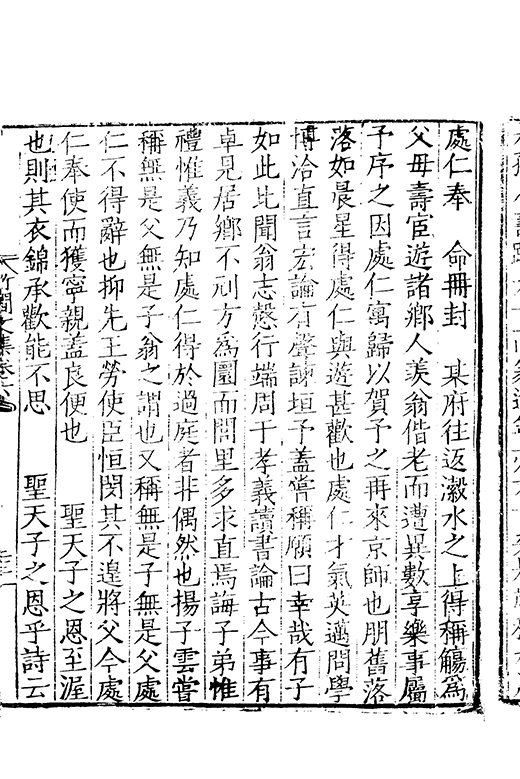 處仁奉　命冊封　某府往返瀫水之上得稱觴爲
父母壽宦遊諸鄉人羡翁偕老而遭異數享樂事屬
予序之因處仁寓歸以賀予之再來京師也朋舊落
落如晨星得處仁與遊甚歡也處仁才氣英邁問學
博洽直言宏論有聲諫垣予蓋嘗稱願曰幸哉有子
如此比聞翁志慤行端周于孝義讀書論古今事有
卓見居鄉不刓方爲圓而閭里多求直焉誨子弟惟
禮惟義乃知處仁得於過庭者非偶然也揚子雲嘗
稱無是父無是子翁之謂也又稱無是子無是父處
仁不得辭也抑先王勞使臣恒閔其不遑將父今處
仁奉使而獲寧親蓋良便也　　聖天子之恩至渥
也則其衣錦承歡能不思　　聖天子之恩乎詩云